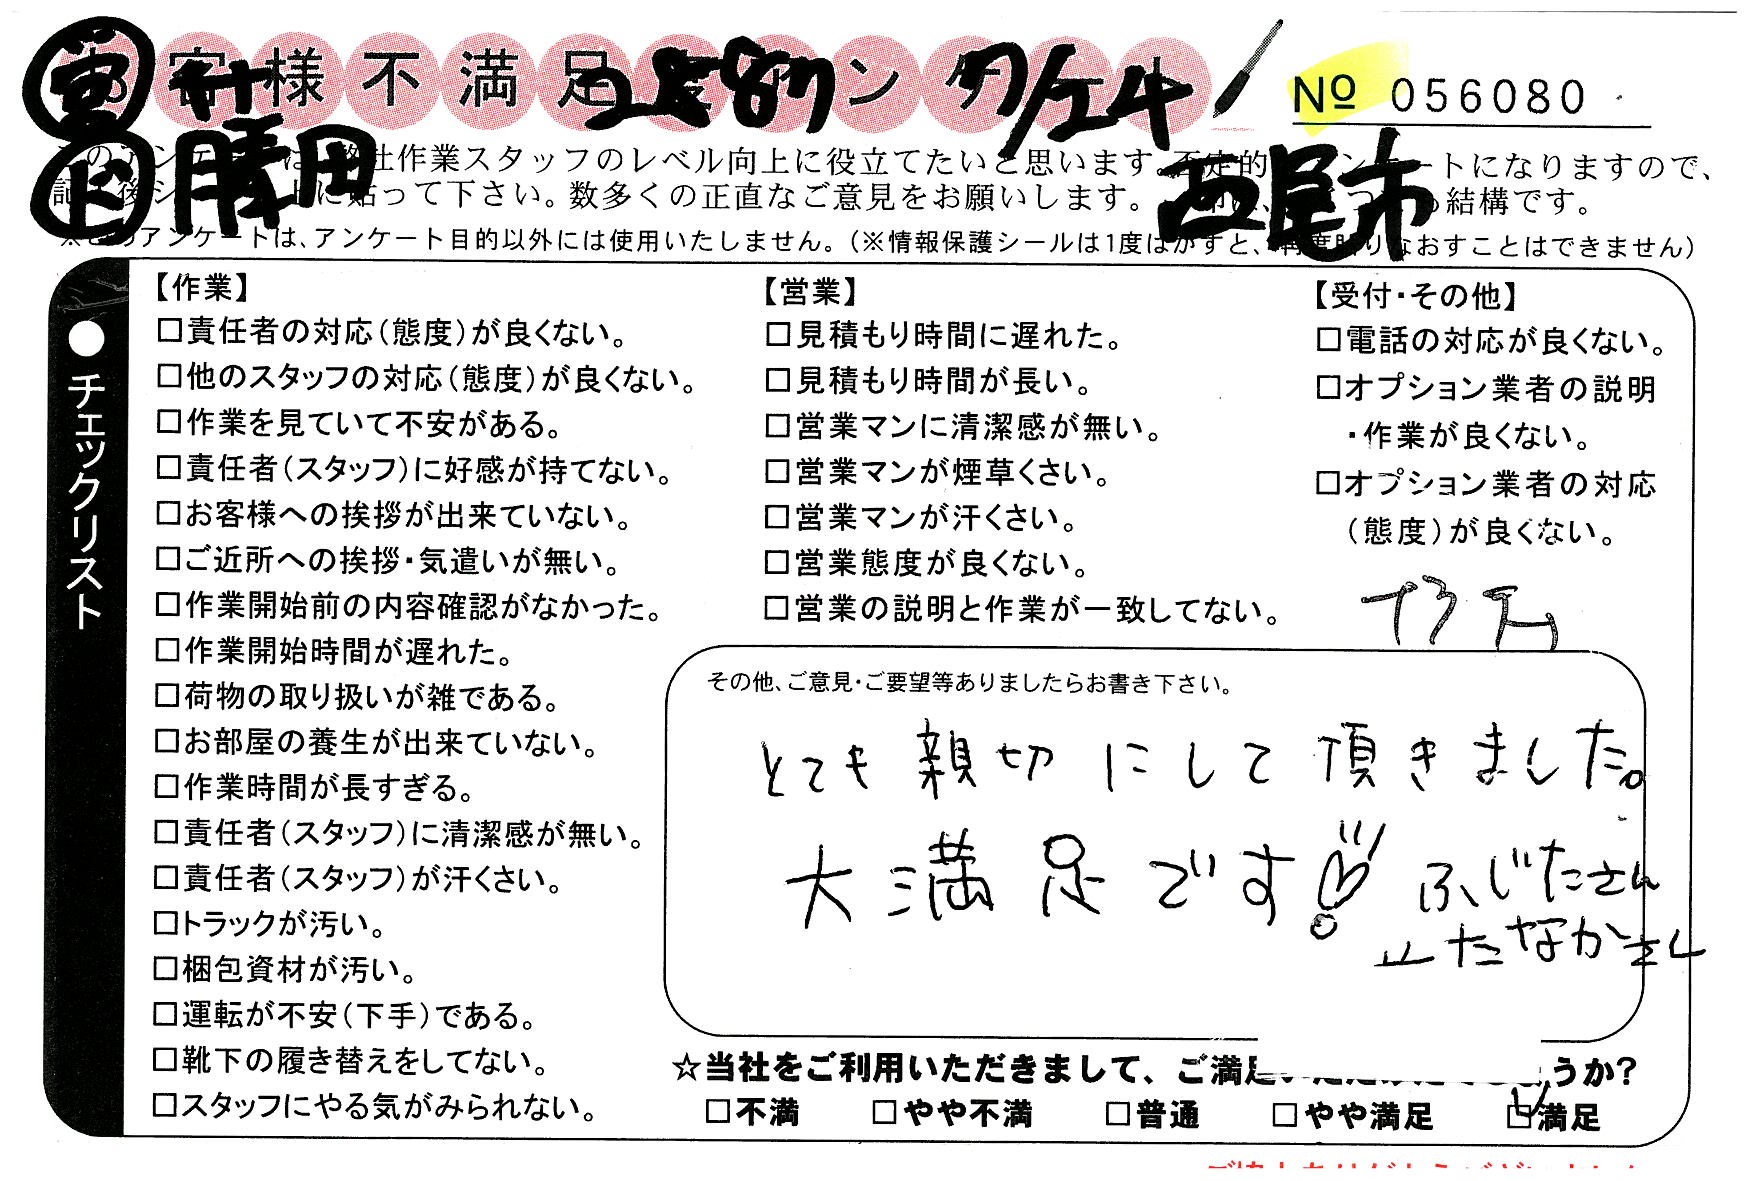 お客様不満足度アンケート 2887 7/24
№ 056080
このアンケートは、弊社作業スタッフのレベル向上に役立てたいと思います。否定的アンケートになりますので、
記入後シールを上に貼って下さい。数多くの正直なご意見をお願いします。
西尾市
※このアンケートは、アンケート目的以外には使用いたしません。(※情報保護シールは1度はがすと、再度貼りなおすことはできません)
●チェックリスト
【作業】
□責任者の対応(態度)が良くない。
□他のスタッフの対応(態度)が良くない。
□作業を見ていて不安がある。
□責任者(スタッフ)に好感が持てない。
□お客様への挨拶が出来ていない。
□ご近所への挨拶・気遣いが無い。
□作業開始前の内容確認がなかった。
□作業開始時間が遅れた。
□荷物の取り扱いが雑である。
□お部屋の養生が出来ていない。
□作業時間が長すぎる。
□責任者(スタッフ)に清潔感が無い。
□責任者(スタッフ)が汗くさい。
□トラックが汚い。
□梱包資材が汚い。
□運転が不安(下手)である。
□靴下の履き替えをしてない。
□スタッフにやる気がみられない。
【営業】
□見積もり時間に遅れた。
□見積もり時間が長い。
□営業マンに清潔感が無い。
□営業マンが煙草くさい。
□営業マンが汗くさい。
□営業態度が良くない。
□営業の説明と作業が一致してない。
【受付・その他】
□電話の対応が良くない。
□オプション業者の説明
・作業が良くない。
□オプション業者の対応
(態度)が良くない。
その他、ご意見・ご要望等ありましたらお書き下さい。
とても親切にして頂きました。
大満足です! ふじたさん
たなかさん
☆当社をご利用いただきまして、ご満足いただけたでしょうか?
□不満 □やや不満 □普通 □やや満足 ☑満足